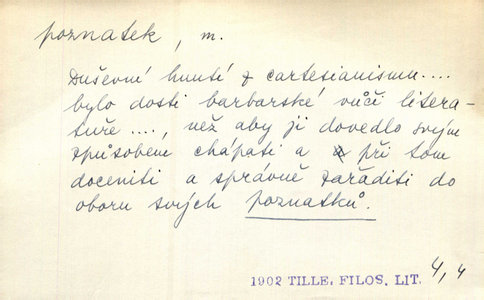 poznatek, m.
Duševní hnutí z cartesianismu....
bylo dosti barbarské vůči litera-
tuře...., než aby ji dovedlo svým
způsobem chápati a při tom
doceniti a správně zařáditi do
oboru svých poznatků.
1902 TILLE, FILOS. LIT. 4, 4